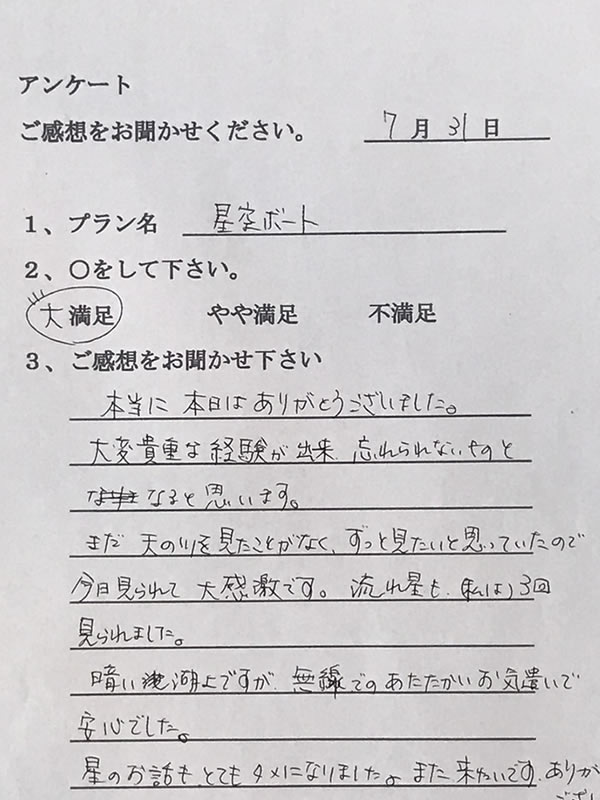 アンケート
ご感想をお聞かせください。 7月31日
1、プラン名 星空ボート
2、○をして下さい。
大満足 やや満足 不満足
3、ご感想をお聞かせ下さい
本当に 本日は ありがとうございました。
大変貴重な 経験が 出来、忘れられないものと
なると思います。
まだ 天の川を見たことがなく、ずっと見たいと思っていたので
今日見られて 大感激です。 流れ星も、私は 3回
見られました。
暗い 湖上ですが、無線での あたたかい お気遣いで
安心でした。
星のお話も、とても タメになりました。また 来たいです。ありが